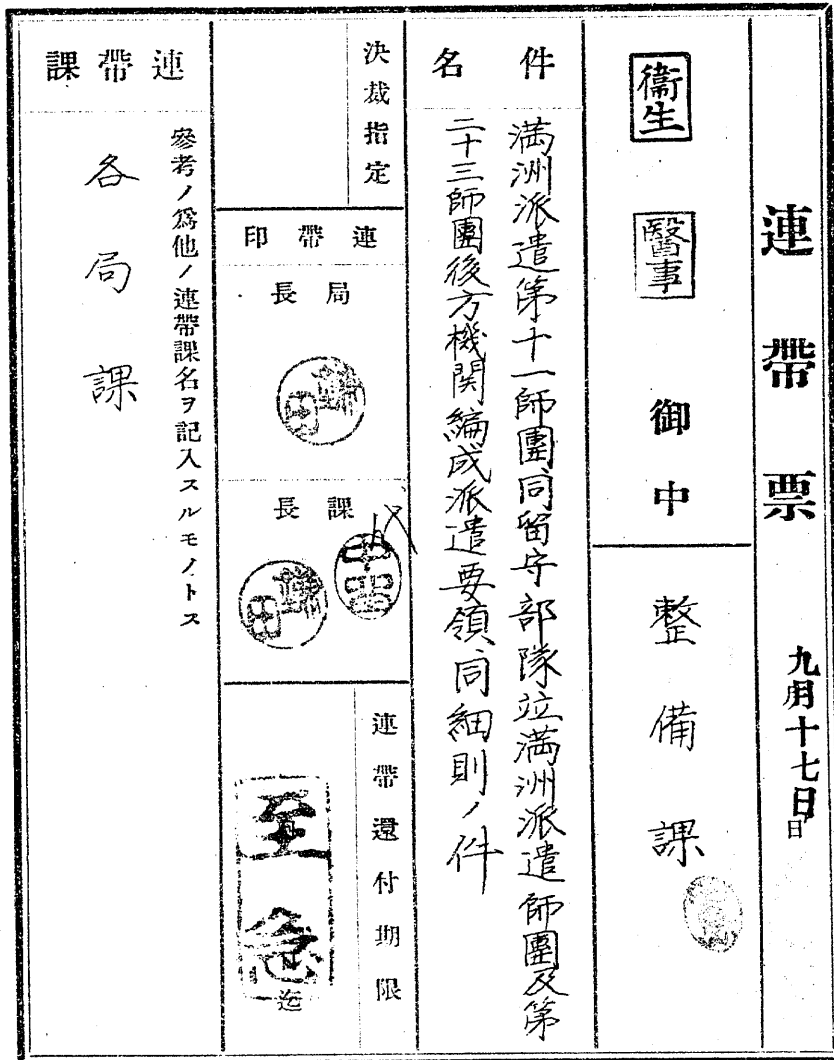 連帶票
九月十七日
日
衞生
醫事
御中
整備課
件名
滿洲派遣第十一師團同留守部隊竝滿洲派遣師團及第
二十三師團後方機関編成派遣要領同細則ノ件
決裁指定
連帶印
局長
課長
連帶還付期限
至急
迄
連帶課
參考ノ爲他ノ連帶課名ヲ記入スルモノトス
各局課